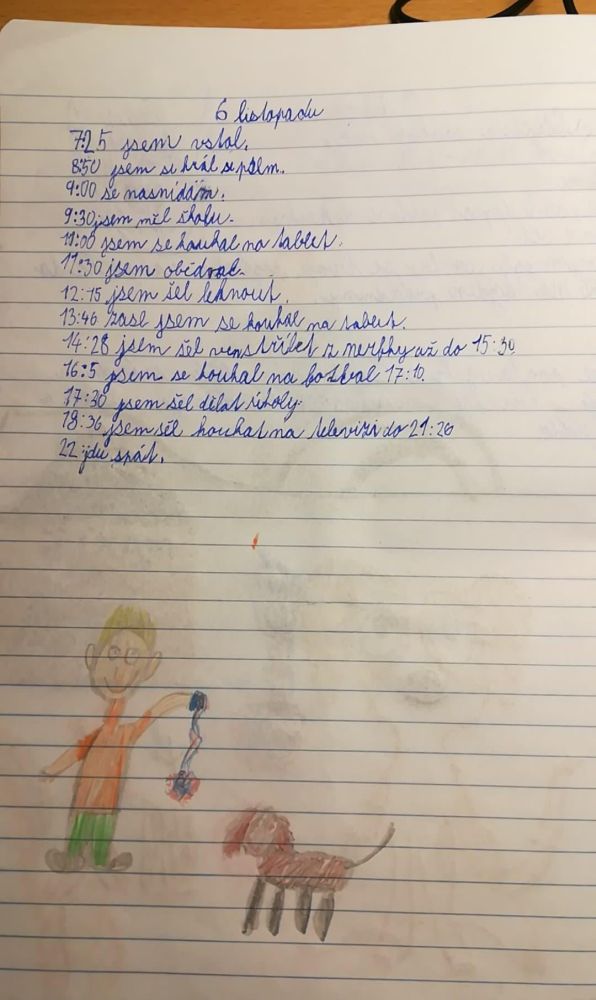 6 listopadu
7:25 jsem vstal.
8:50 jsem si hrál se psem.
9:00 se nasnídám.
9:30 jsem měl školu.
11:00 jsem se koukal na tablet.
11:30 jsem obědval.
12:15 jsem šel lehnout.
13:46 zase jsem se koukal na tablet.
14:28 jsem šel ven střílet z nerfky až do 15:30.
16:5 jsem se koukal na fotbal 17:10.
17:30 jsem šel dělat úkoly.
18:36 jsem šel koukat na televizi do 21:20
22 jdu spát.